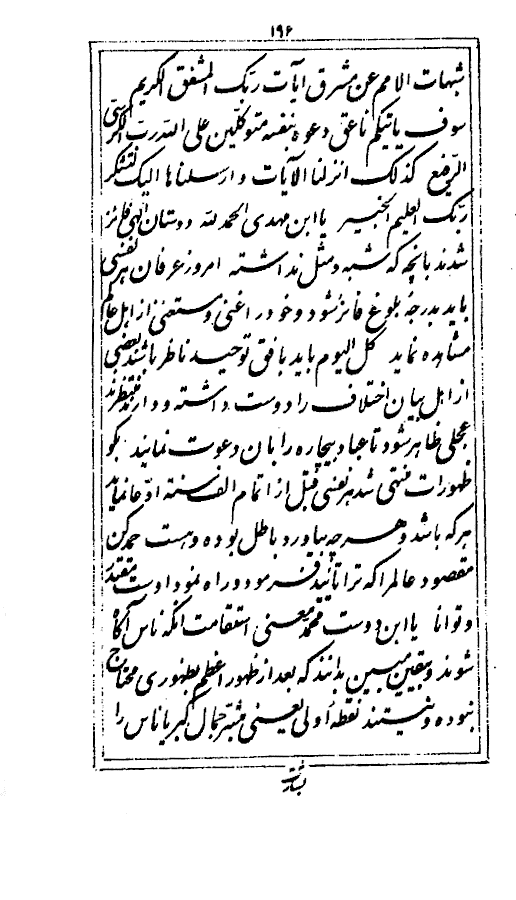 ۱۹۶
شبهات الامم عن مشرق آیات ربک المشفق الکریم
سوف یأتیکم ناعق دعوه بنفسه متوکلین علی الله رب الکرسی
الرفیع کذلک انزلنا الآیات و ارسلناها الیک لتشکر
ربک العلیم الخبیر یا ابن مهدی الحمد لله دوستان الهی فائز
شدند بآنچه که شبه و مثل نداشته امروز عرفان هر نفسی
باید بدرجهٔ بلوغ فائز شود و خود را غنی و مستغنی از اهل عالم
مشاهده نماید کل الیوم باید بافق توحید ناظر باشند بعضی
از اهل بیان اختلاف را دوست داشته و دارند منتظرند
عجلی ظاهر شود تا عباد بیچاره را بآن دعوت نمایند بگو
ظهورات منتهی شد هر نفسی قبل از اتمام الف سنه ادعا نماید
هر که باشد و هر چه بیاورد باطل بوده و هست حمد کن
مقصود عالم را که ترا تأیید فرمود و راه نمود اوست مقتدر
و توانا یا ابن دوست محمد معنی استقامت آنکه ناس آگاه
شوند و بیقین مبین بدانند که بعد از ظهور اعظم بظهوری محتاج
نبوده و نیستند نقطه اولی یعنی مبشر جمال کبریا ناس را
بشارت